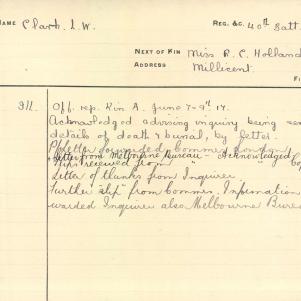 NAME Clark. I. W. REG. &C. 40th Batt
NEXT OF KIN Miss R. C. Holland
ADDRESS Millicent.
FI
311. Off. rep. Kin A. June 7-9th 17.
Acknowledged advising inquiry being
details of death & burial, by letter.
letter forwarded Commrs London
letter from Melbourne Bureau - Acknowledged
received from " "
Letter of thanks from Inquirer.
Further slip from Commrs. Information
warded Inquirer also Melbourne Bureau